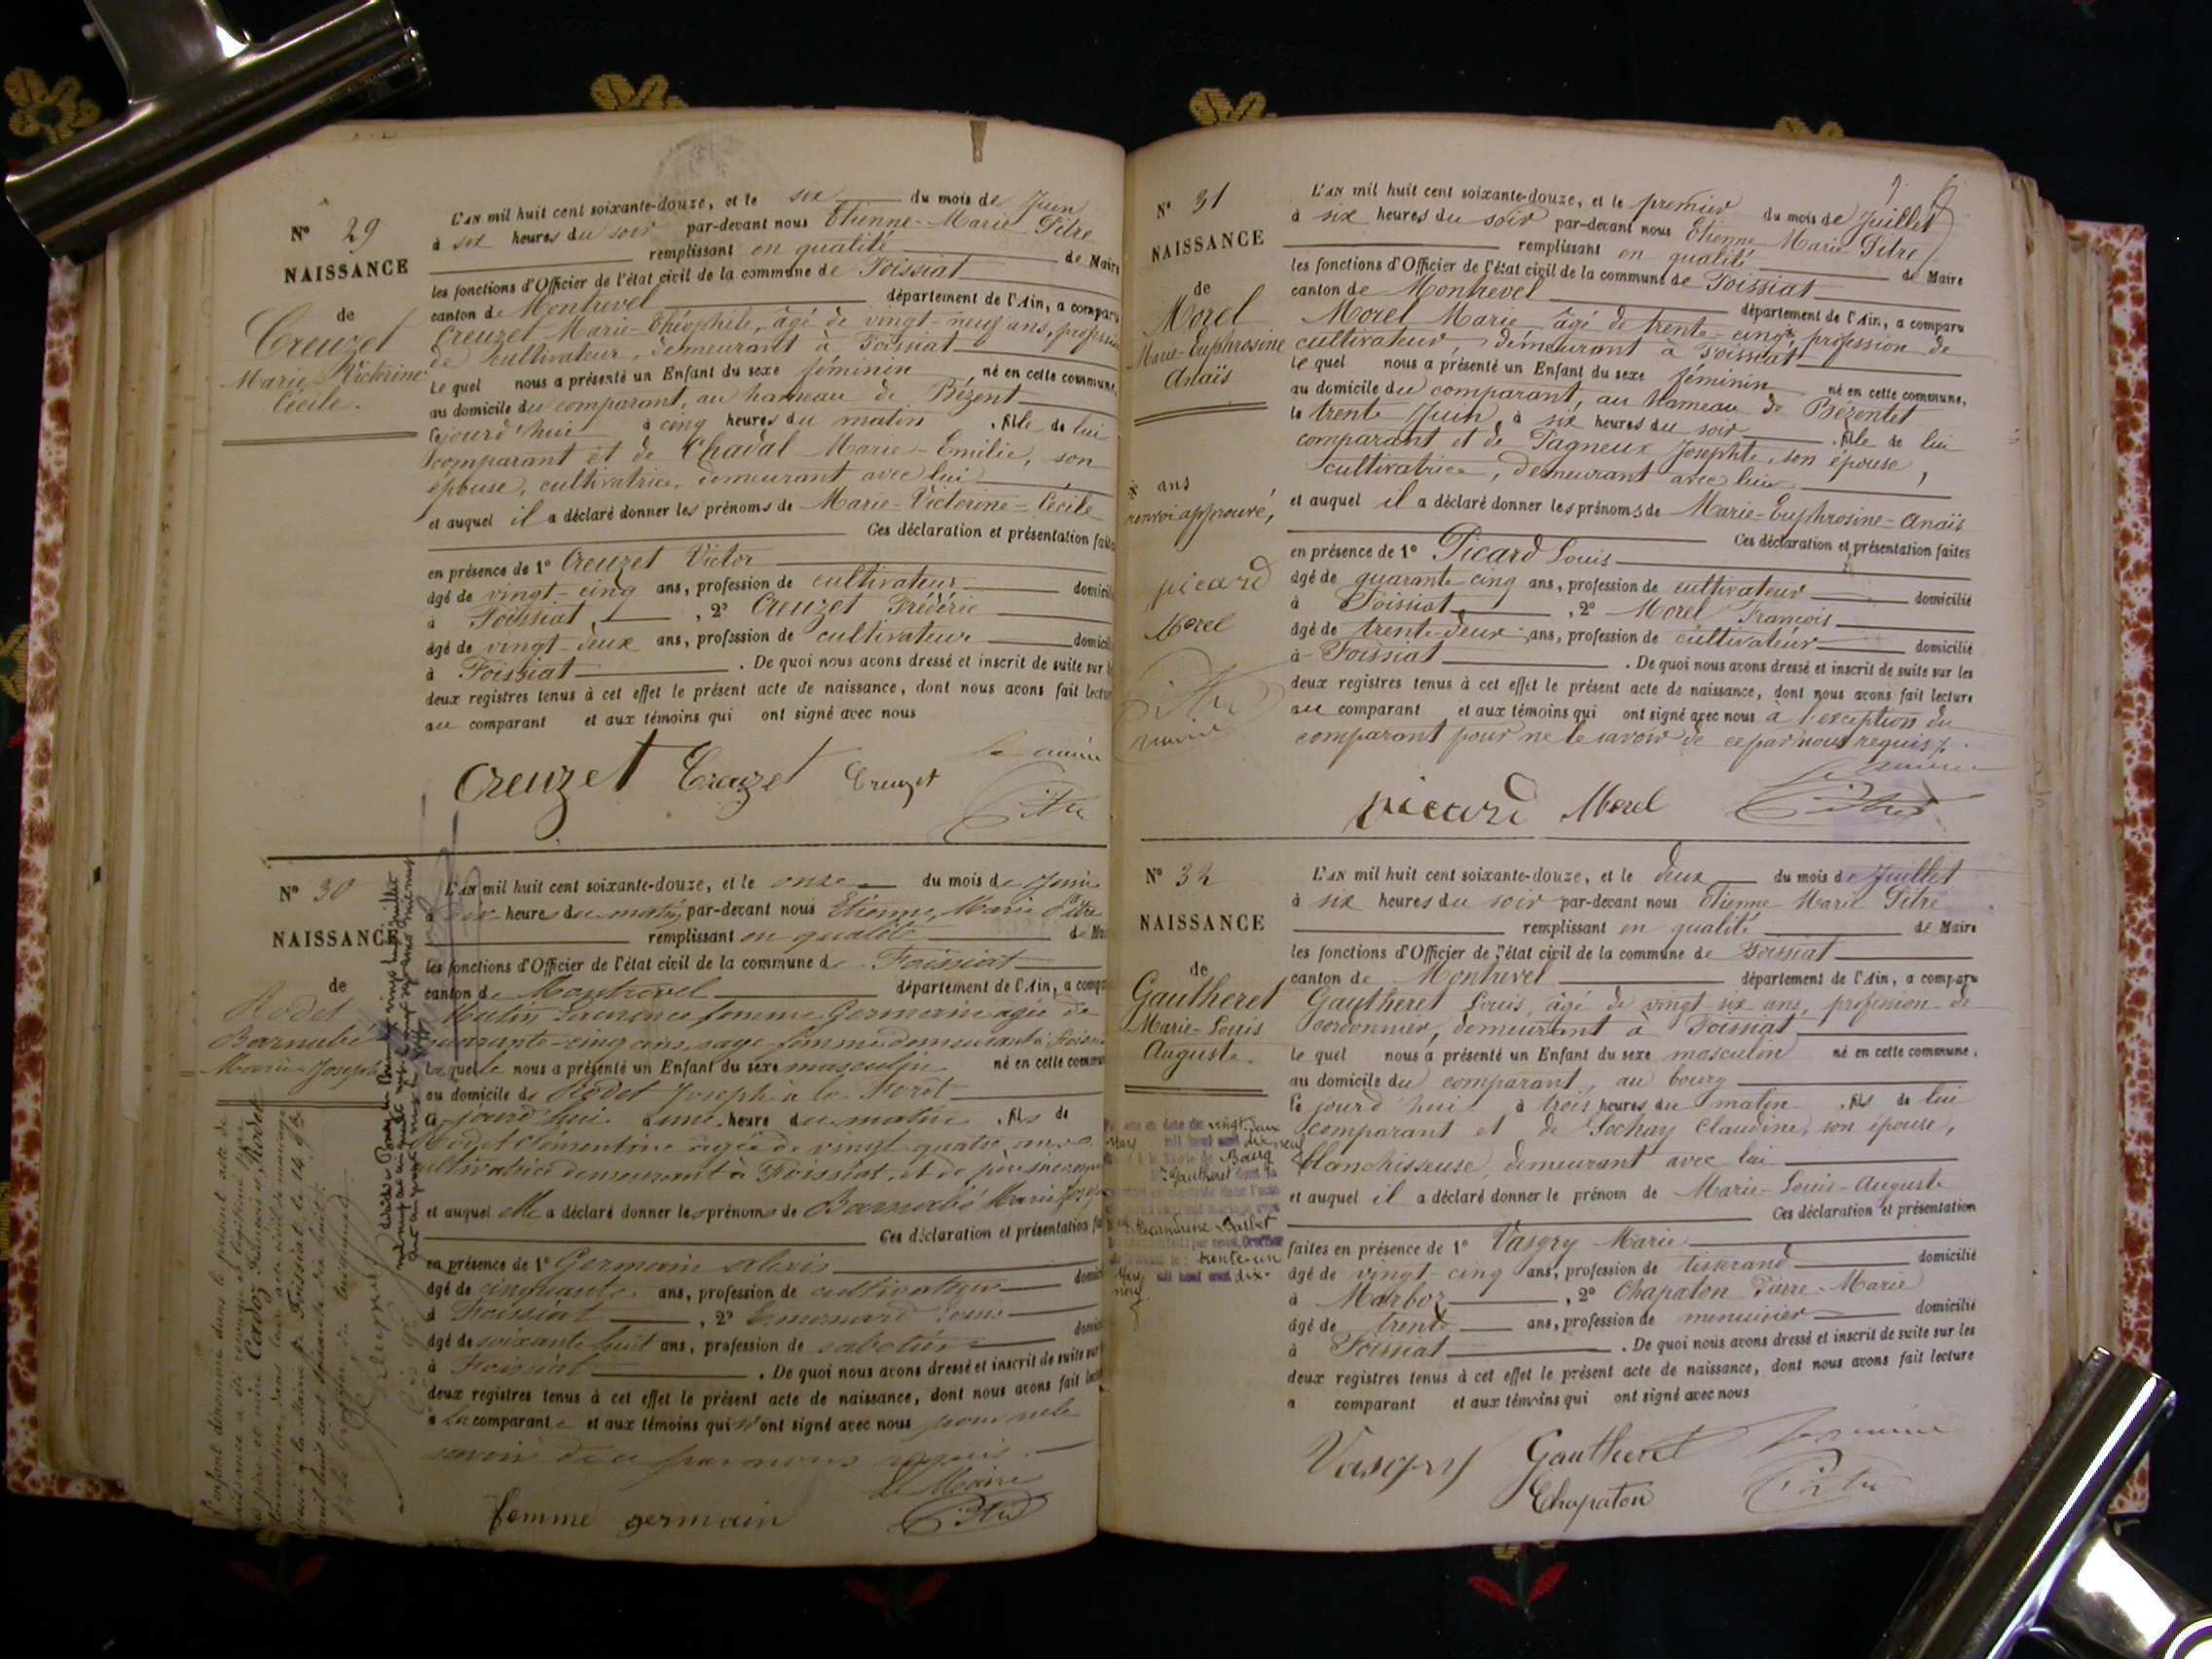 N° 29
NAISSANCE
de
Creuzet
Marie Victorine
Cécile.
L'AN mil huit cent soixante-douze, et le six du mois de Juin
à six heures du soir par-devant nous Etienne-Marie Pitre
remplissant en qualité de Maire
les fonctions d'Officier de l'état civil de la commune de Foissiat
canton de Montrevel département de l'Ain, a comparu
Creuzet Marie-Théophile, âgé de vingt-neuf ans, profession
de cultivateur, demeurant à Foissiat
le quel nous a présenté un Enfant du sexe féminin né en cette commune,
au domicile du comparant, au hameau de Bézent
ce jourd'hui à cinq heures du matin, fille de lui
comparant et de Chadal Marie-Emilie, son
épouse, cultivatrice, demeurant avec lui
et auquel il a déclaré donner les prénoms de Marie-Victorine-Cécile
Ces déclaration et présentation faites
en présence de 1° Creuzet Victor
âgé de vingt-cinq ans, profession de cultivateur domicilié
à Foissiat, 2° Creuzet Frédéric
âgé de vingt-deux ans, profession de cultivateur domicilié
à Foissiat. De quoi nous avons dressé et inscrit de suite sur les
deux registres tenus à cet effet le présent acte de naissance, dont nous avons fait lecture
au comparant et aux témoins qui ont signé avec nous
le maire
Creuzet Creuzet Creuzet Pitre
N° 30
NAISSANCE
de
Rodet
Barnabé
Marie Joseph
L'AN mil huit cent soixante-douze, et le onze du mois de Juin
à dix heures du matin, par-devant nous Etienne Marie Pitre
remplissant en qualité de Maire
les fonctions d'Officier de l'état civil de la commune de Foissiat
canton de Montrevel département de l'Ain, a comparu
Laurence femme Germain âgée de
quarante-cinq ans, sage-femme demeurant à Foissiat
laquelle nous a présenté un Enfant du sexe masculin né en cette commune
au domicile de Rodet Joseph à la Forêt
ce jourd'hui à une heure du matin, fils de
Rodet Clémentine âgée de vingt quatre ans
cultivatrice demeurant à Foissiat, et de père inconnu
et auquel elle a déclaré donner les prénoms de Barnabé Marie Joseph
Ces déclaration et présentation faites
en présence de 1° Germain Alexis
âgé de cinquante ans, profession de cultivateur domicilié
à Foissiat, 2°
âgé de soixante huit ans, profession de sabotier domicilié
à Foissiat. De quoi nous avons dressé et inscrit de suite sur
deux registres tenus à cet effet le présent acte de naissance, dont nous avons fait lecture
à la comparante et aux témoins qui n'ont signé avec nous pour ne le
savoir de ce par nous requis.
Le Maire
femme germain Pitre
L'enfant dénommé dans le présent acte de
naissance a été reconnu et légitimé par
ses père et mère Cadoz François et Rodet
Clémentine, dans leur acte civil de mariage
N° 31
NAISSANCE
de
Morel
Marie-Euphrosine
Anaïs
ans
renvoi approuvé,
picard
Morel
Pitre
maire
L'AN mil huit cent soixante-douze, et le premier du mois de Juillet
à six heures du soir par-devant nous Etienne Marie Pitre
remplissant en qualité de Maire
les fonctions d'Officier de l'état civil de la commune de Foissiat
canton de Montrevel département de l'Ain, a comparu
Morel Marie âgé de trente-cinq profession de
cultivateur, demeurant à Foissiat
le quel nous a présenté un Enfant du sexe féminin né en cette commune,
au domicile du comparant, au hameau de Bézentet
le trente Juin, à six heures du soir, fille de lui
comparant et de Pagneux Josephte, son épouse,
cultivatrice, demeurant avec lui
et auquel il a déclaré donner les prénoms de Marie-Euphrosine-Anaïs
Ces déclaration et présentation faites
en présence de 1° Picard Louis
âgé de quarante cinq ans, profession de cultivateur domicilié
à Foissiat, 2° Morel François
âgé de trente-deux ans, profession de cultivateur domicilié
à Foissiat. De quoi nous avons dressé et inscrit de suite sur les
deux registres tenus à cet effet le présent acte de naissance, dont nous avons fait lecture
au comparant et aux témoins qui ont signé avec nous à l'exception du
comparant pour ne le savoir de ce par nous requis.
le maire
picard Morel Pitre
N° 32
NAISSANCE
de
Gautheret
Marie-Louis
Auguste.
L'AN mil huit cent soixante-douze, et le deux du mois de Juillet
à six heures du soir par-devant nous Etienne Marie Pitre
remplissant en qualité de Maire
les fonctions d'Officier de l'état civil de la commune de Foissiat
canton de Montrevel département de l'Ain, a comparu
Gautheret Louis, âgé de vingt six ans, profession de
cordonnier, demeurant à Foissiat
le quel nous a présenté un Enfant du sexe masculin né en cette commune,
au domicile du comparant, au bourg
ce jourd'hui à trois heures du matin, fils de lui
comparant et de Sochay Claudine, son épouse,
blanchisseuse, demeurant avec lui
et auquel il a déclaré donner le prénom de Marie-Louis-Auguste
Ces déclaration et présentation
faites en présence de 1° Vasgry Marie
âgé de vingt-cinq ans, profession de tisserand domicilié
à Marboz, 2° Chapaton Pierre-Marie
âgé de trente ans, profession de menuisier domicilié
à Foissiat. De quoi nous avons dressé et inscrit de suite sur les
deux registres tenus à cet effet le présent acte de naissance, dont nous avons fait lecture
a comparant et aux témoins qui ont signé avec nous
Vasgry Gautheret le maire
Chapaton Pitre